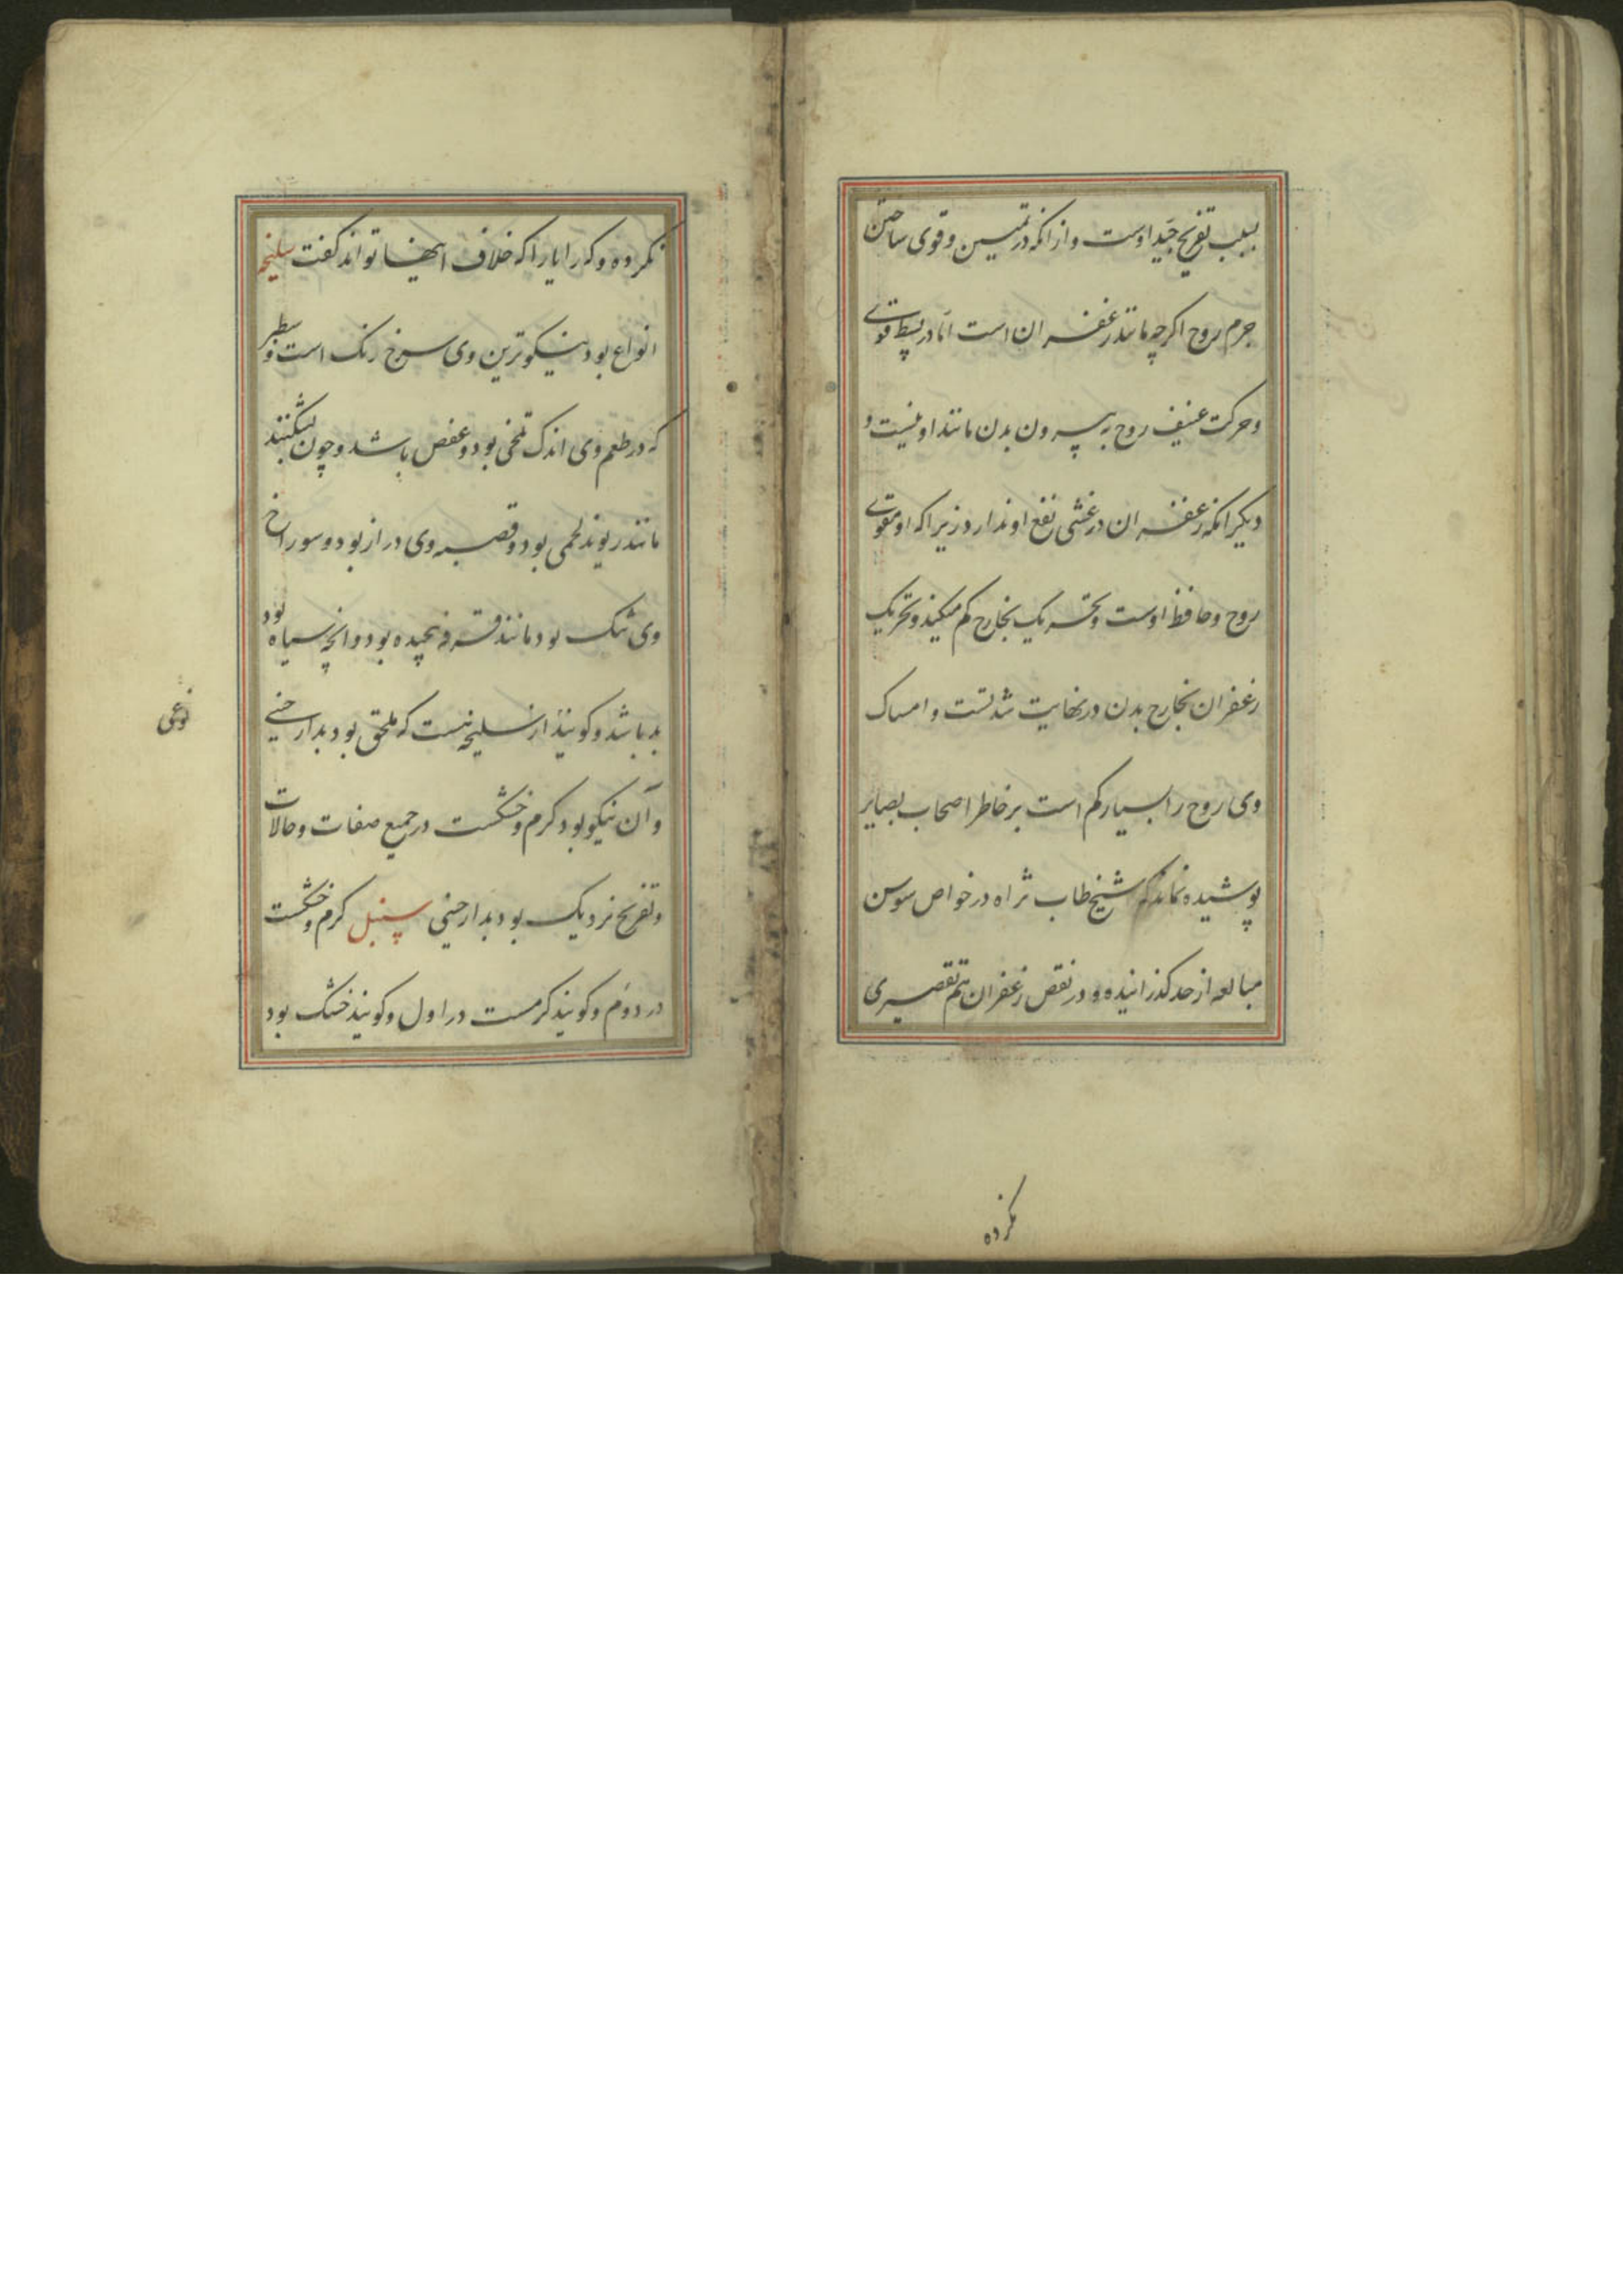 بسبب تفریح جید اوست و از انکه در تمتین و قوی ساختن
جرم روح اکرچه مانند زعفران است اما در بسط قوی
و حرکت عنیف روح به بیرون بدن مانند او نیست و
دیکر انکه زعفران در غشی نفع او ندارد زیرا که او مقوی
روح و حافظ اوست و تحریک بخارج کم میکند و تحریک
زعفران بخارج بدن در نهایت شدتست و امساک
وی روح را بسیار کم است بر خاطر اصحاب بصایر
پوشیده نماند که شیخ طاب ثراه در خواص سوسن
مبالغه از حد کذرانیده و در نقص زعفران هم تقصیری
نکرده
نکرده و که را یارا که خلاف اینها تواند کفت سلیخه
انواع بود نیکوترین وی سرخ رنک است و سطبر
که در طعم وی اندک تلخی بود و عفص باشد و چون بشکنند
مانند ریوند لحمی بود و قصبه وی دراز بود و سوراخ
وی تنک بود مانند قرفه پیچیده بود و انچه سیاه بود
بد باشد و کویند از سلیخه نیست که ملحق بود بدارچینی
نوعی
و آن نیکو بود کرم و خشکست در جمیع صفات و حالات
و تفریح نزدیک بود بدارچینی سنبل کرم و خشکست
در دوم و کویند کرمست در اول و کویند خشک بود